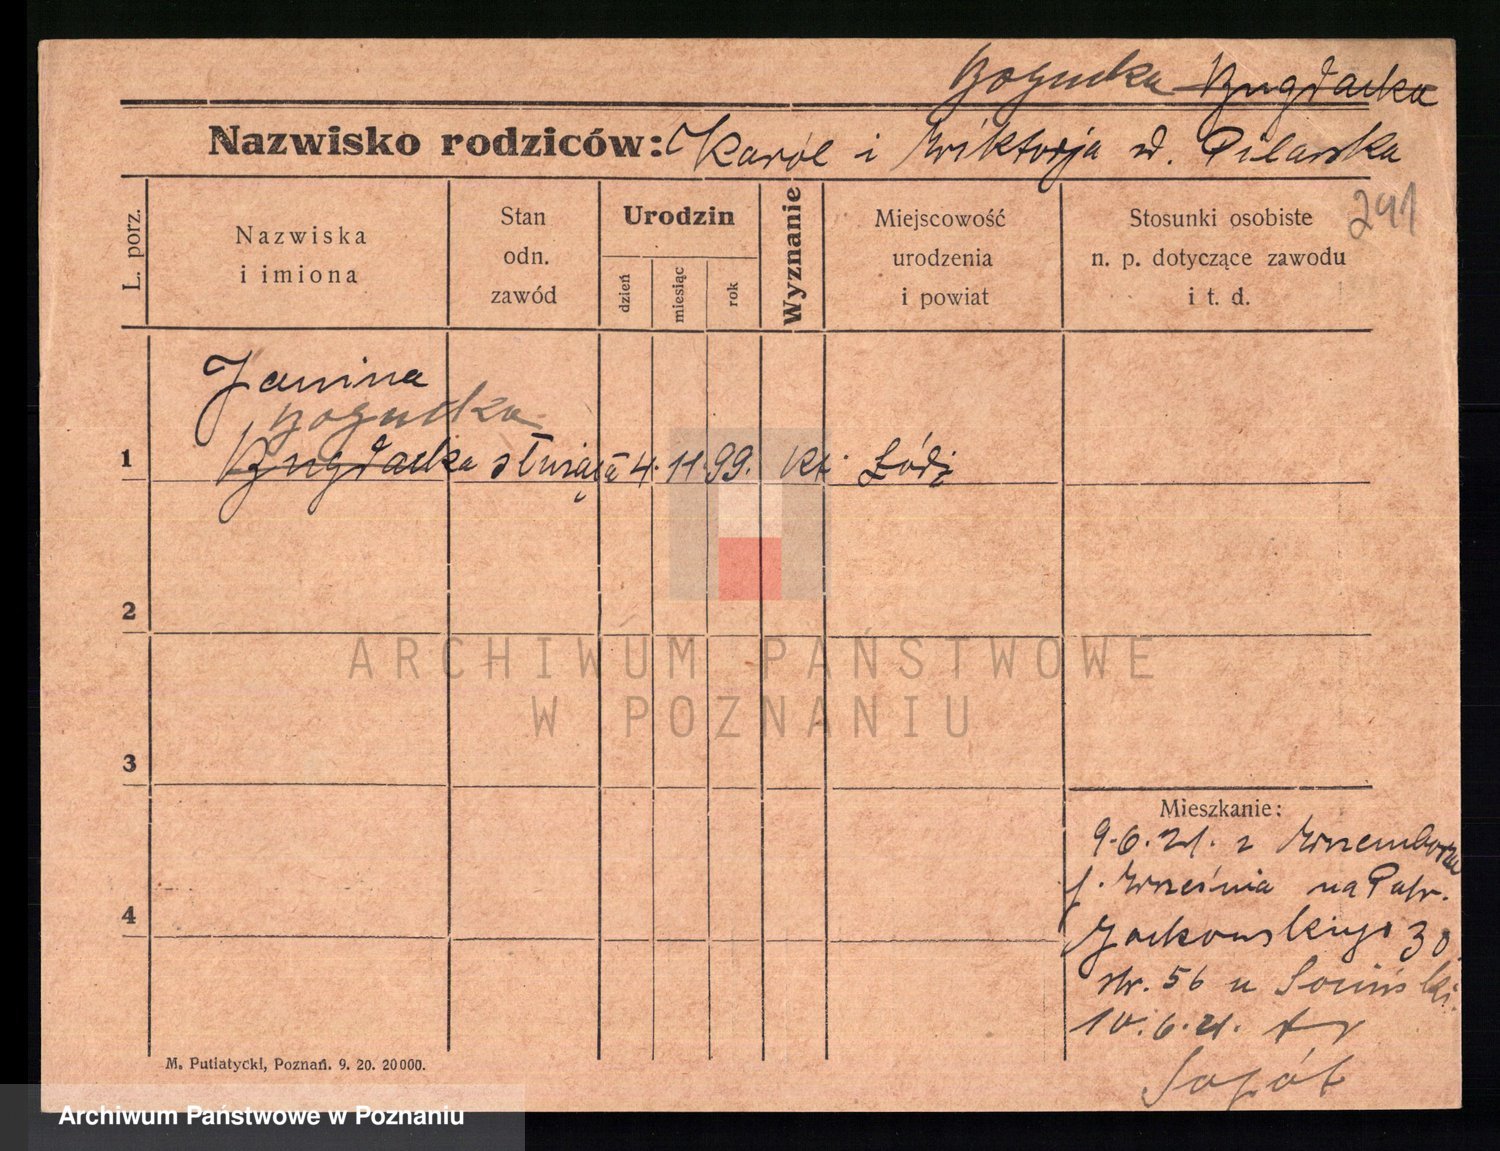 Bogucka Bugdacka
Nazwisko rodziców: Karól i Wiktorja d. Pilarska
241
L. porz.
Nazwiska
i imiona
Stan
odn.
zawód
Urodzin
dzień
miesiąc
rok
Wyznanie
Miejscowość
urodzenia
i powiat
Stosunki osobiste
n. p. dotyczące zawodu
i t. d.
Janina
Bogucka
1 Bugdacka służąca 4. 11. 99. kt. Łódź
2
3
4
Mieszkanie:
9.6.21. z
p. Września na Patr.
Jackowskiego 30
str. 56 u
10.6.21.
M. Putiatycki, Poznań. 9. 20. 20000.
ARCHIWUM PAŃSTWOWE
W POZNANIU
Archiwum Państwowe w Poznaniu